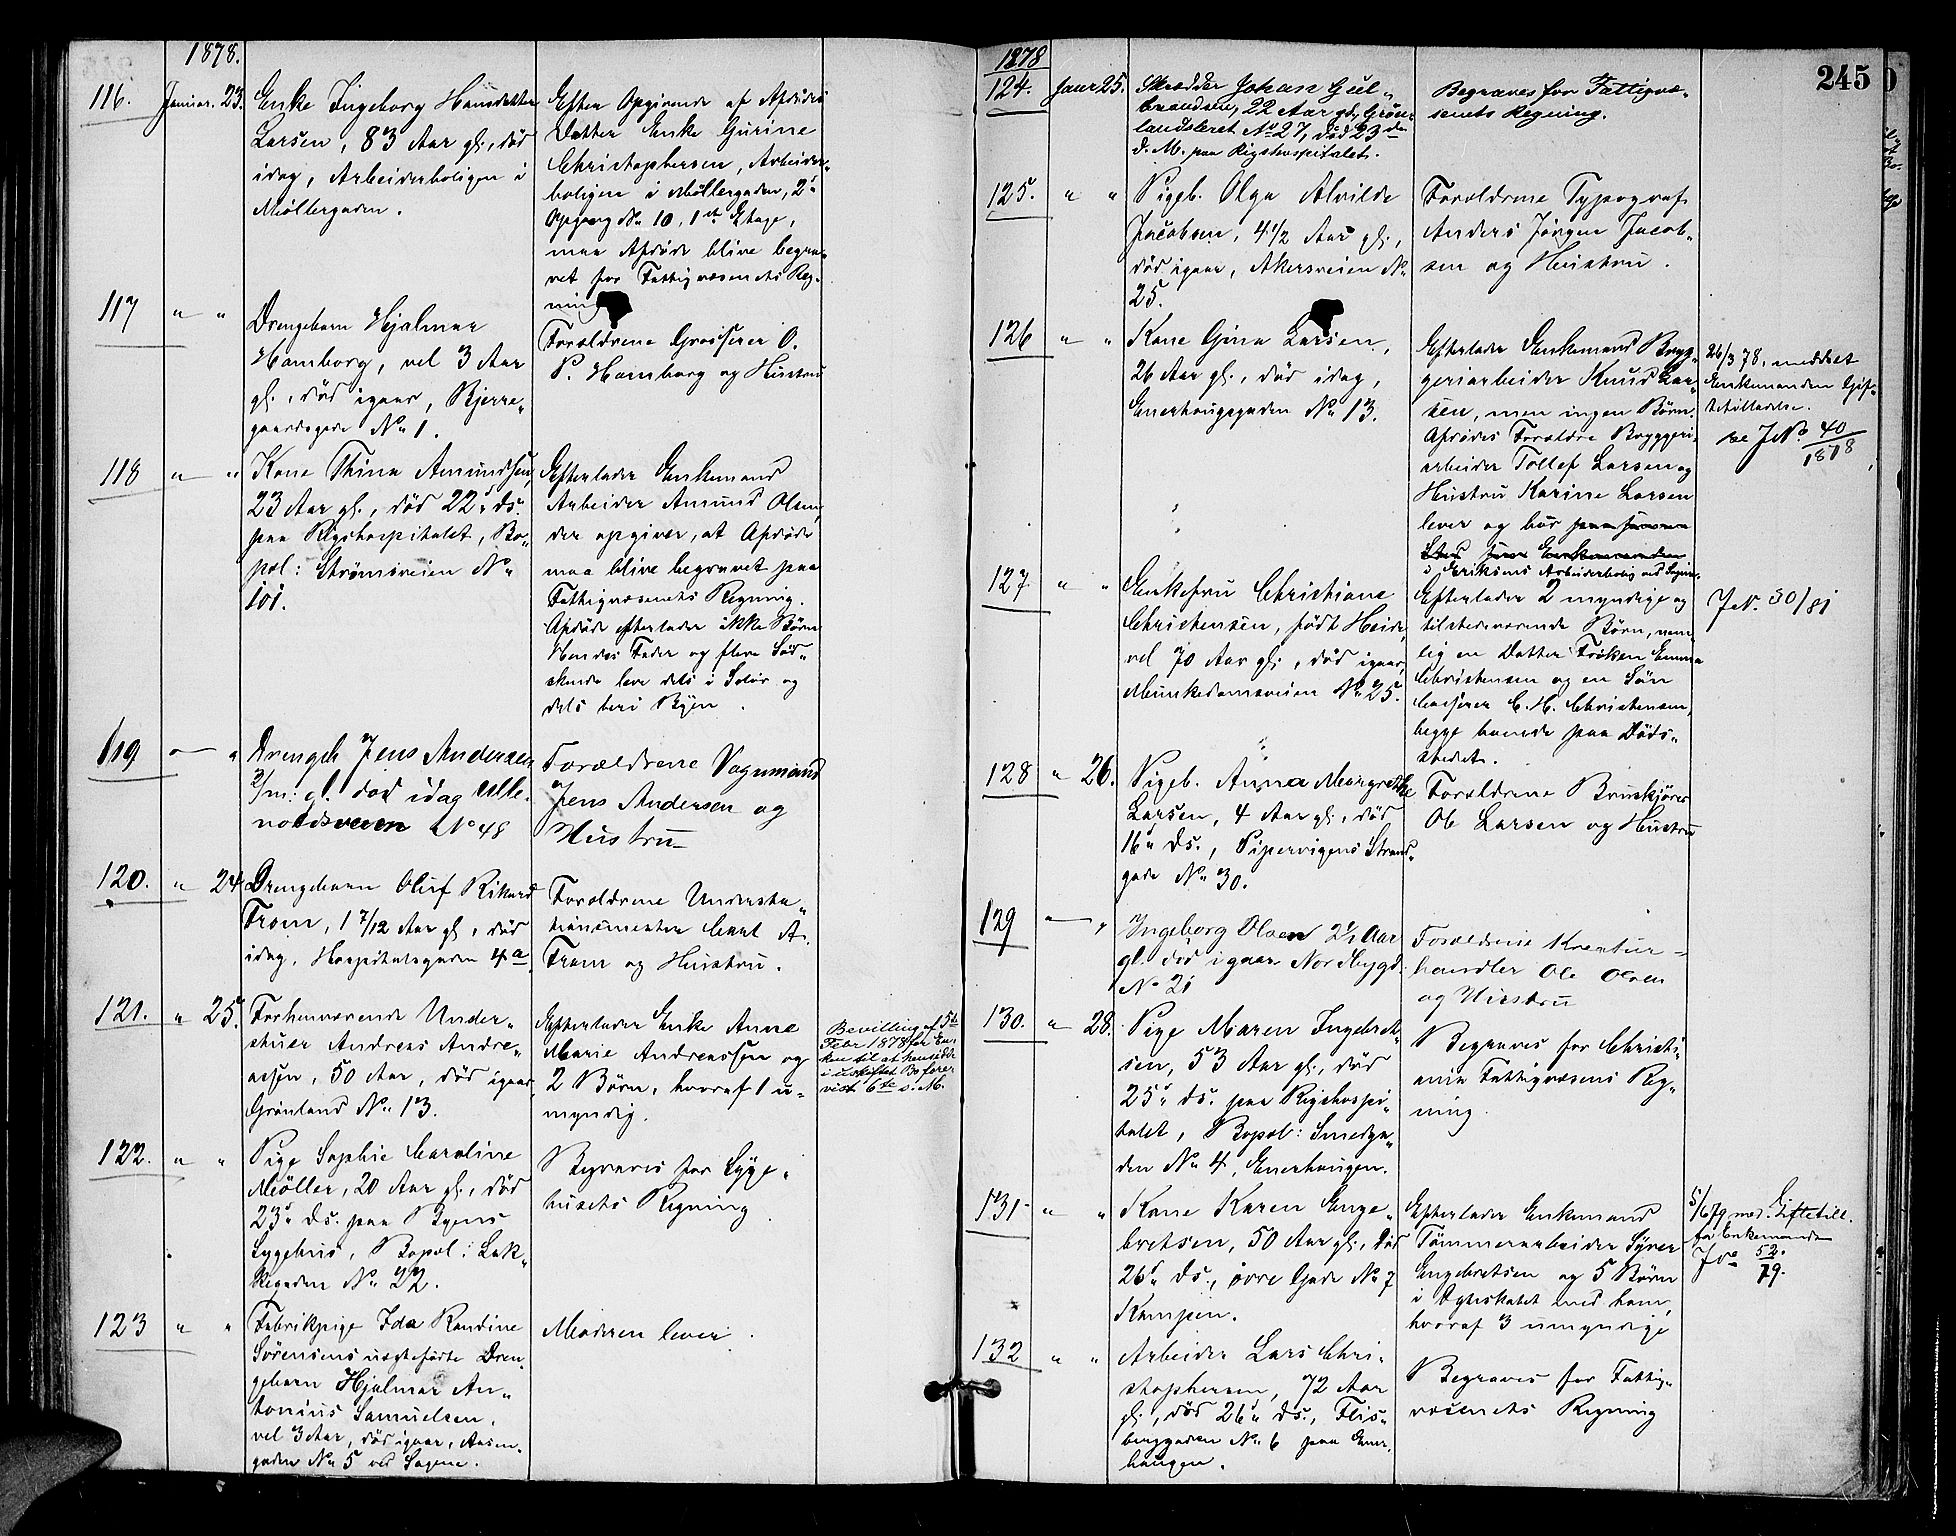 1878.
116. Januar. 23. Enke Ingeborg Hansdatter
Larsen, 83 Aar gl., død
idag, Arbeiderboligen i
Møllergaden.
Efter Opgivende af Afdødes
Datter Enke Gurine
Christophersen, Arbeider-
boligen i Møllergaden, 2den
Opgang No 10, 1ste Etage,
maa Afdøde blive begra-
vet for Fattigvæsenets Reg-
ning
117 " " Drengebarn Hjalmar
Hamborg, vel 3 Aar
gl., død igaar, Bjerre-
gaardsgade No 1.
Forældrene Grosserer O.
P. Hamborg og Hustru
118 " " Kone Thina Amundsen,
23 Aar gl., død 22de ds.
paa Rigshospitalet, Bo-
pæl: Strømsveien No
101.
Efterlader Enkemand
Arbeider Amund Olsen,
der opgiver, at Afdøde
maa blive begravet paa
Fattigvæsenets Regning.
Afdøde efterlader ikke Børn
Hendes Fader og flere Sød-
skende leve dels i Solør og
dels heri Byen.
119 — " Drengeb Jens Andersen
2/m: gl. død idag Ulle-
voldsveien No 48
Forældrene Vognmand
Jens Andersen og
Hustru
120. " 24 Drengebarn Oluf Rikard
From, 1 7/12 Aar gl., død
idag, Hospitalsgaden 4a
Forældrene Understa-
tionsmester Carl A.
From og Hustru.
121. " 25. Forhenværende Under-
stuer Andreas Andre-
assen, 50 Aar, død igaar
Grønland No 13.
Efterlader Enke Anne
Marie Andreassen og
2 Børn, hvoraf 1 u-
myndig.
Bevilling af 5te
Febr 1878 for En-
ken til at hensidde
i uskiftet Bo fore-
vist 6te s. M.
122. " " Pige Sophie Caroline
Møller, 20 Aar gl., død
23de ds. paa Byens
Sygehus, Bopæl: Lak-
kegaden No 22.
Begraves for Syge-
husets Regning
123 " " Fabrikpige Ida Randine
Sørensens uægtefødte Dren-
gebarn Hjalmar An-
tonius Samuelsen.
vel 3 Aar, død igaar, Aasen-
gaden No 5 ved Sagene.
Moderen lever.
245
1878
124. Janr 25. Skrædder Johan Gul-
brandsen, 22 Aar gl, Grøn-
landsleret No 27, død 23de
d. M. paa Rigshospitalet.
Begraves for Fattigvæ-
senets Regning.
125. " " Pigeb. Olga Alvilde
Jacobsen, 4 1/2 Aar gl.,
død igaar, Akersveien No
25.
Forældrene Typograf
Anders Jørgen Jacob-
sen og Hustru.
126 " " Kone Gina Larsen,
26 Aar gl., død idag,
Enerhougsgaden No 13.
Efterlader Enkemand Bryg-
geriarbeider Knud Lar-
sen, men ingen Børn.
Afdødes Forældre Bryggeri-
arbeider Tollef Larsen og
Hustru Karine Larsen
lever og bor paa samme
Sted som Enkemanden
i Eriksens Arbeiderbolig ved Sagene.
26/3 78. meddelt
Enkemanden Gifte-
tilladelse.
se JNo 40/1878
127. " " Enkefru Christiane
Christensen, født Heide,
vel 70 Aar gl., død igaar,
Munkedamsveien No 25.
Efterlader 2 myndige og
tilstedeværende Børn, nem-
lig en Datter Frøken Emma
Christensen og en Søn
Casserer C. H. Christensen,
begge boende paa Døds-
stedet.
JN. 30/81
128 " 26. Pigeb. Anna Margrethe
Larsen, 4 Aar gl., død
16de ds., Pipervigens Strand-
gade No 30.
Forældrene Bruskjører
Ole Larsen og Hustru
129 — " Ingeborg Olsen 2 1/2 Aar
gl. død igaar Nordbygd:
No 21
Forældrene Kreatur-
handler Ole Olsen
og Hustru
130. " 28. Pige Maren Ingebret-
sen, 53 Aar gl., død
25de ds. paa Rigshospi-
talet, Bopæl: Smedga-
den No 4, Enerhaugen.
Begraves for Christi-
ania Fattigvæsens Reg-
ning.
131 " " Kone Karen Enge-
bretsen, 50 Aar gl., død
26de ds., øvre Gade No 7
Kampen.
Efterlader Enkemand
Tømmerarbeider Syver
Engebretsen og 5 Børn
i Ægteskabet med ham,
hvoraf 3 umyndige
5/6 79 med. Giftetill.
for Enkemanden
JNo 52/79.
132 " " Arbeider Lars Chri-
stophersen, 72 Aar
gl., død 26de ds., Flis-
berggaden No 6 paa Ener-
haugen.
Begraves for Fattig-
væsenets Regning